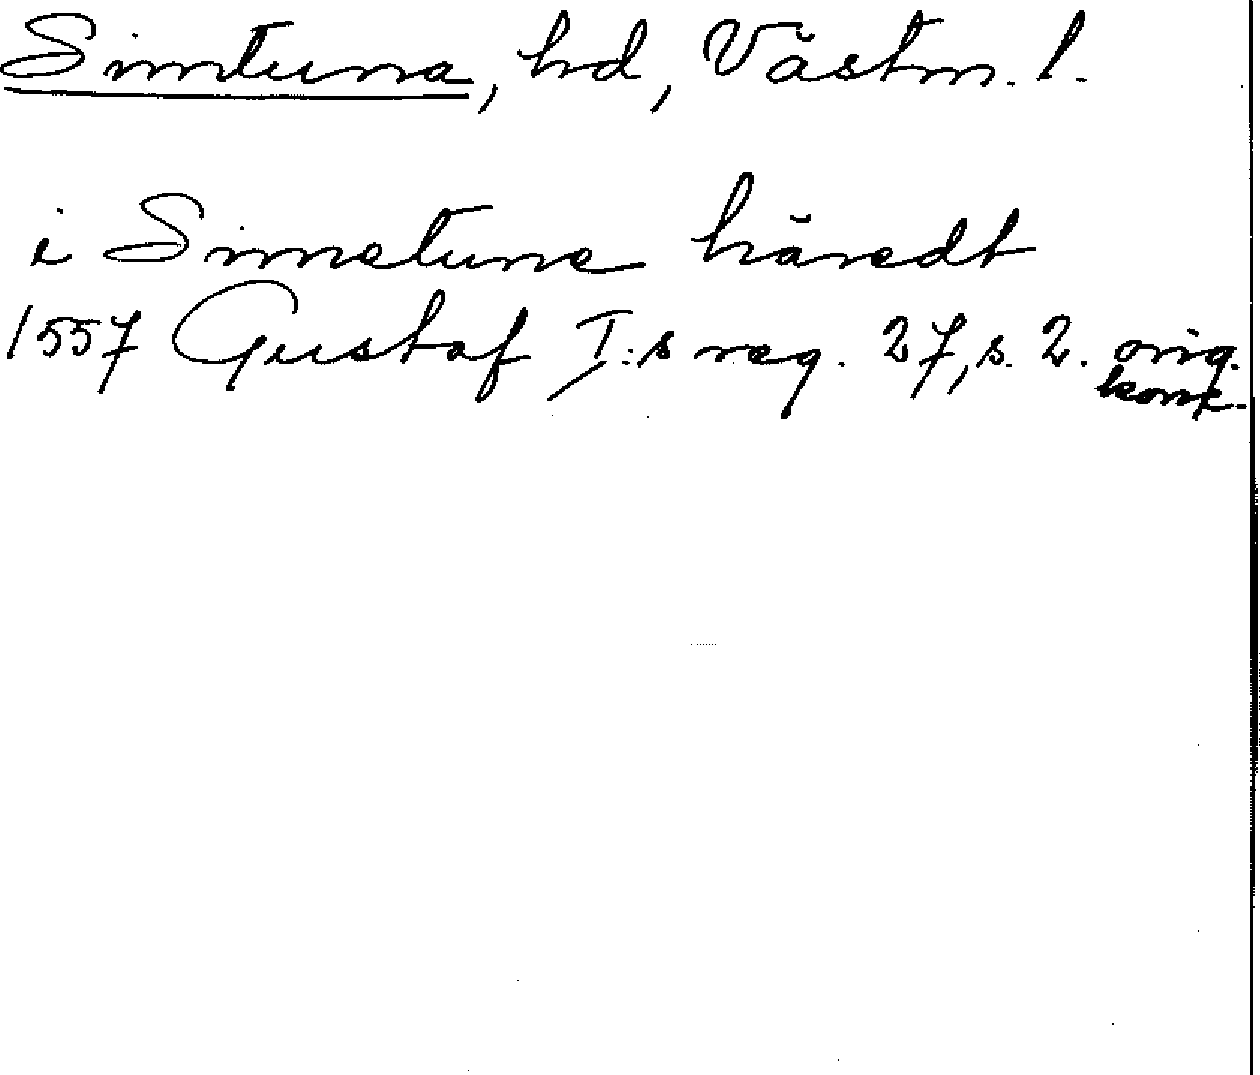 Simtuna, hd, Västm. l.
i Simetune häredt
1557 Gustaf I:s reg. 27, s. 2. orig.
konc.